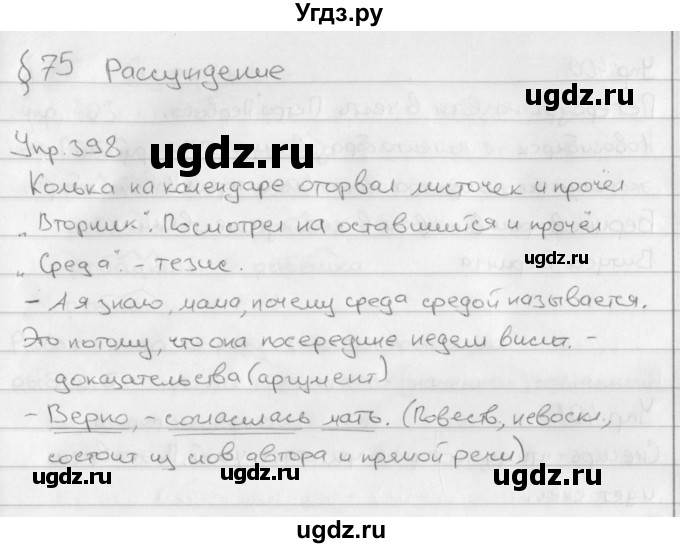 Угдз.ру
§ 75 Рассуждение
ugdz.ru
Упр. 398
ugdz.ru
Колька на календаре оторвал листочек и прочёл
„Вторник". Посмотрел на оставшийся и прочёл
„Среда". - тезис.
ugdz.ru
- А я знаю, мама, почему среда средой называется.
Это потому, что она посередине недели висит. -
доказательства (аргумент)
- Верно, - согласилась мать. (Повеств., невоскл.,
состоит из слов автора и прямой речи)
ugdz.ru ugdz.ru ugdz.ru
ugdz.ru